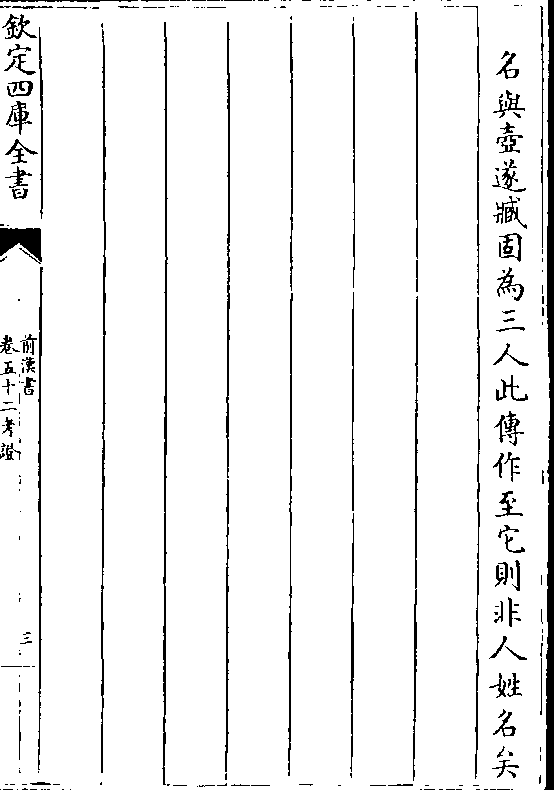 名與壺遂臧固為三人此傳作至它則非人姓名矣
欽定四庫全書
前漢書
卷五十二考證
三